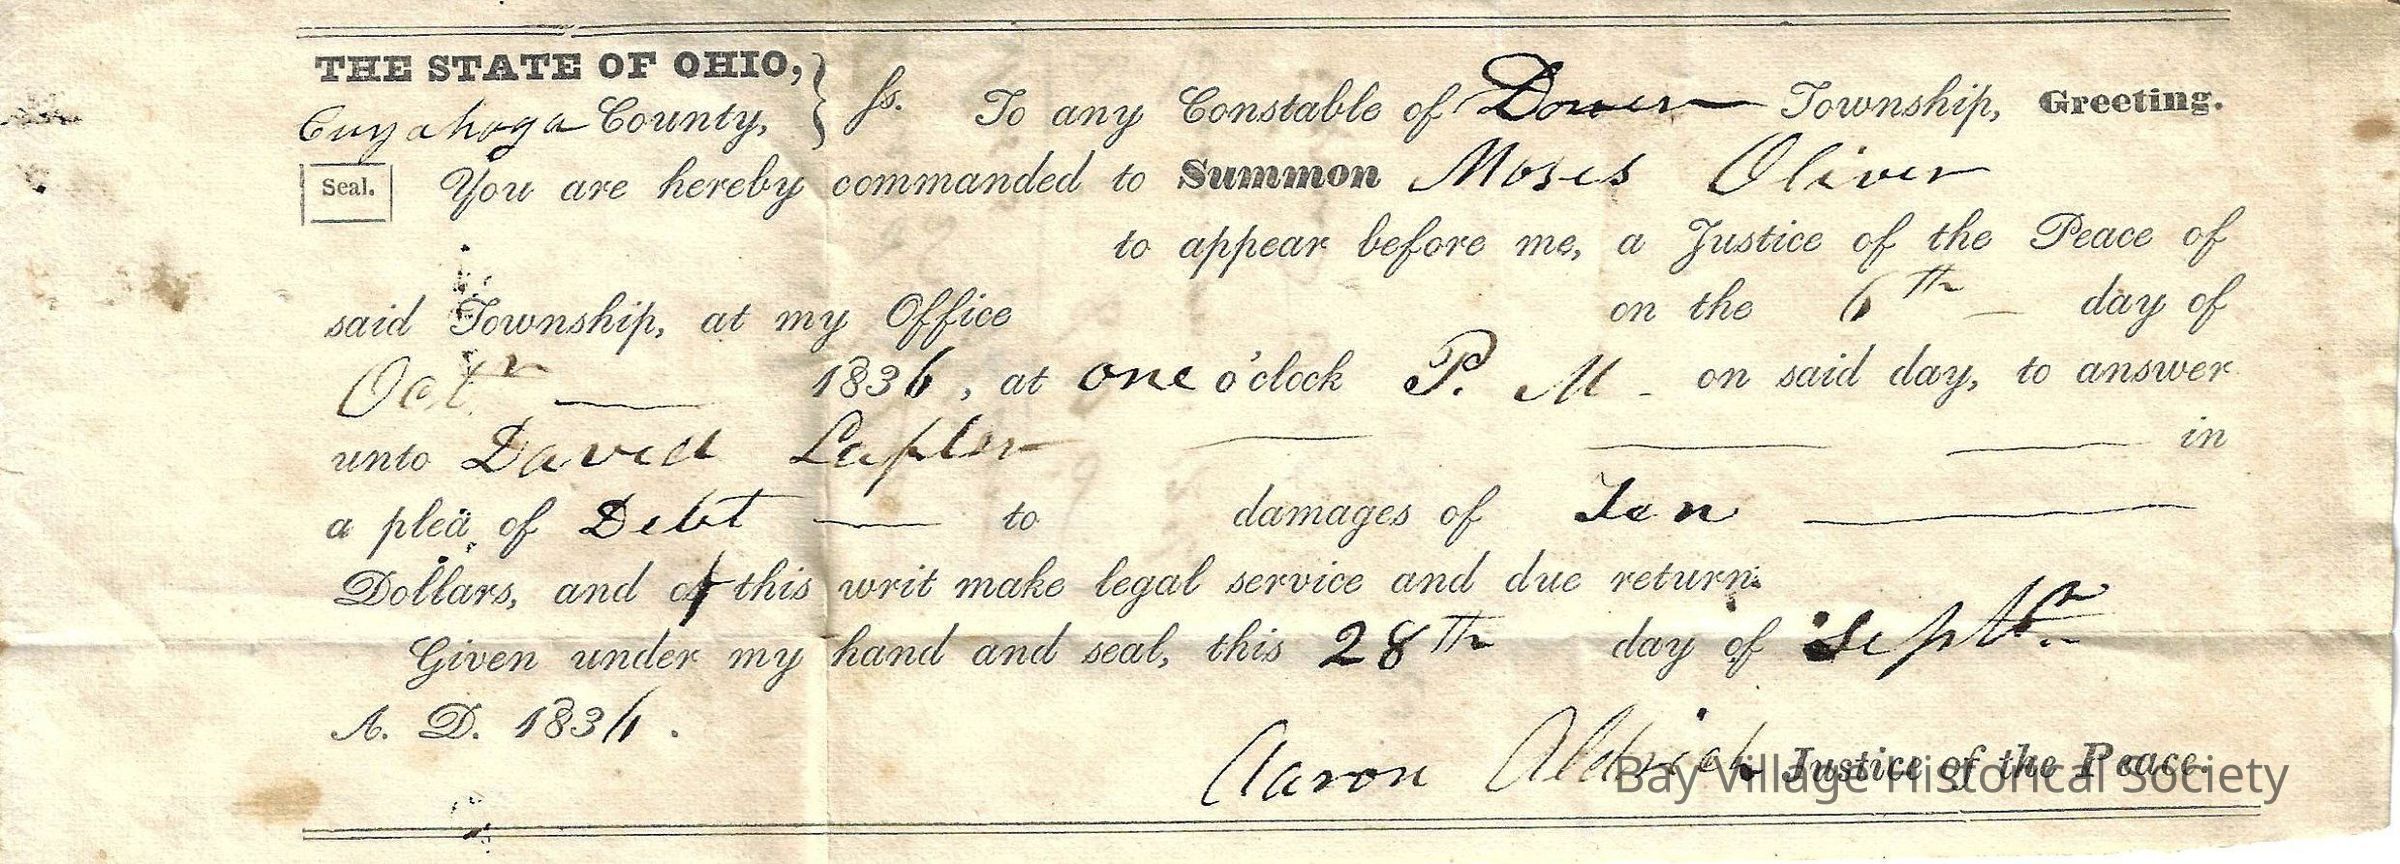 THE STATE OF OHIO,
Cuyahoga County, ss. To any Constable of Dover Township, Greeting.
Seal. You are hereby commanded to Summon Moses Oliver
to appear before me, a Justice of the Peace of
said Township, at my Office on the 6th day of
Octr 1836, at one o'clock P. M. on said day, to answer
unto David in
a plea of Debt to damages of Ten
Dollars, and of this writ make legal service and due return.
Given under my hand and seal, this 28th day of Septr
A. D. 1836.
Aaron Aldrich Justice of the Peace.
Bay Village Historical Society